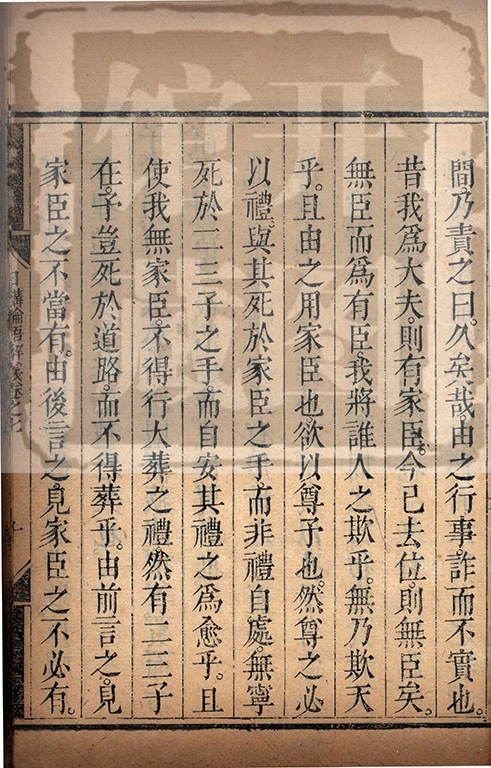 間乃責之曰。久矣哉。由之行事。詐而不實也。
昔我爲大夫。則有家臣。今已去位。則無臣矣。
無臣而爲有臣。我將誰人之欺乎。無乃欺天
乎。且由之用家臣也。欲以尊子也。然尊之必
以禮。與其死於家臣之手。而非禮自處。無寧
死於二三子之手。而自安其禮之爲愈乎。且
使我無家臣。不得行大葬之禮。然有二三子
在。子豈死於道路。而不得葬乎。由前言之。見
家臣之不當有。由後言之。見家臣之不必有。
日講論語解義卷之七
十